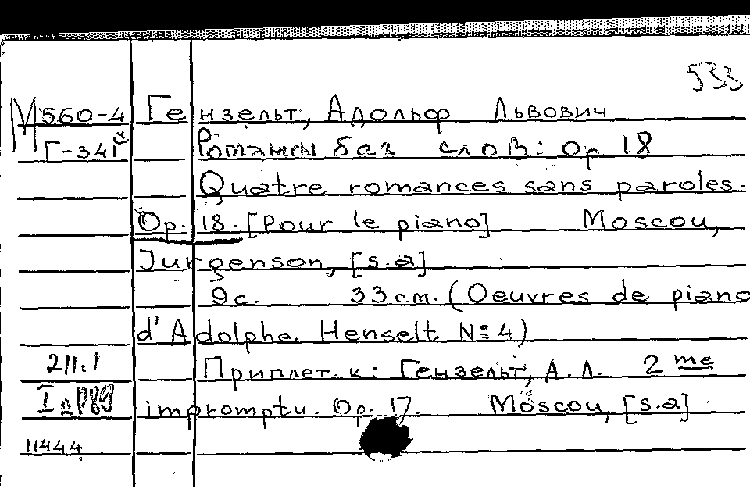 533
М560-4 Гензельт, Адольф Львович
Г-34Г Романсы без слов: Ор 18
Quatre romances sans paroles.
Op. 18. [Pour le piano] Moscou,
Jurgenson, [s.a]
9с. 33см. (Oeuvres de piano
d'Adolphe Henselt № 4)
211.1 Приплет. к: Гензельт, А.Л. 2 me
impromptu. Op. 17. Moscou, [s.a]
11444